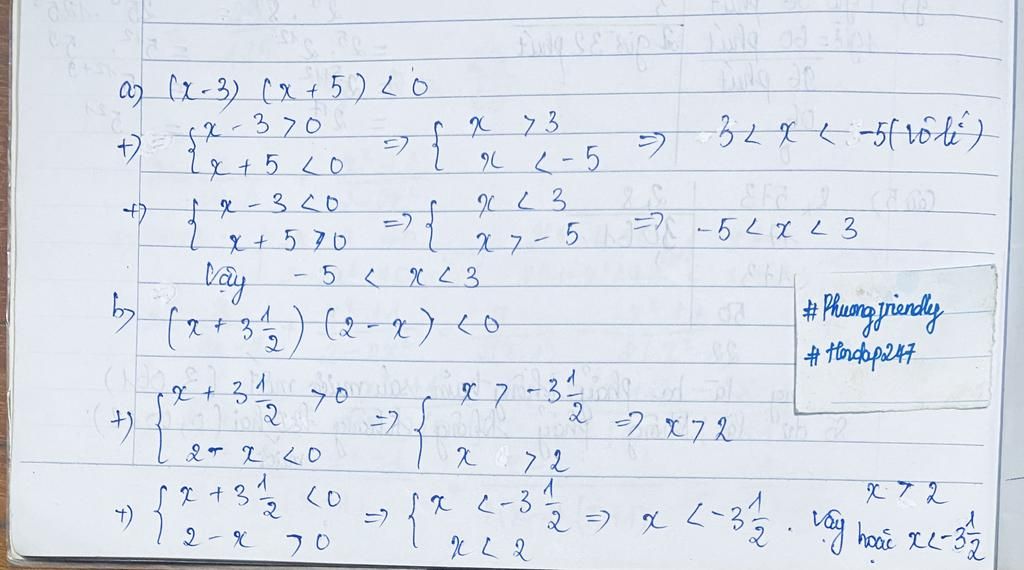 a) (x-3) (x+5) < 0
+) { x - 3 > 0 ; x + 5 < 0 => { x > 3 ; x < -5 => 3 < x < -5 (vô lí)
+) { x - 3 < 0 ; x + 5 > 0 => { x < 3 ; x > -5 => -5 < x < 3
Vậy -5 < x < 3
b) (x + 3 1/2) (2 - x) < 0
#Phuongfriendly
#Hoidap247
+) { x + 3 1/2 > 0 ; 2 - x < 0 => { x > -3 1/2 ; x > 2 => x > 2
+) { x + 3 1/2 < 0 ; 2 - x > 0 => { x < -3 1/2 ; x < 2 => x < -3 1/2 . Vậy x > 2 hoặc x < -3 1/2